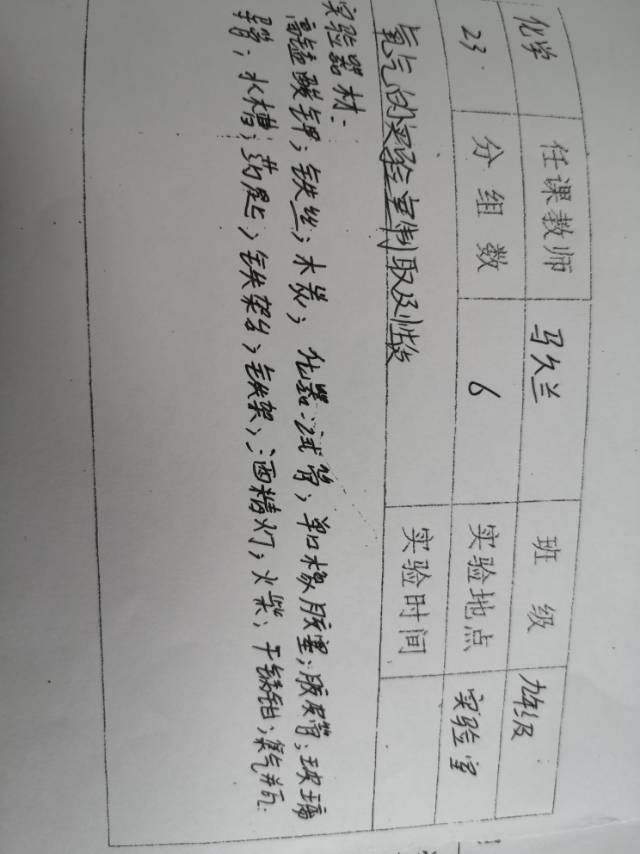 化学 任课教师 马久兰 班级 九年级
23. 分组数 6 实验地点 实验室
氧气的实验室制取及性质 实验时间
实验器材:
高锰酸钾; 铁丝; 木炭; 仪器: 试管; 单口橡胶塞; 胶皮管; 玻璃
导管; 水槽; 药匙; 铁架台; 铁架; 酒精灯; 火柴; 干锅钳; 集气瓶.